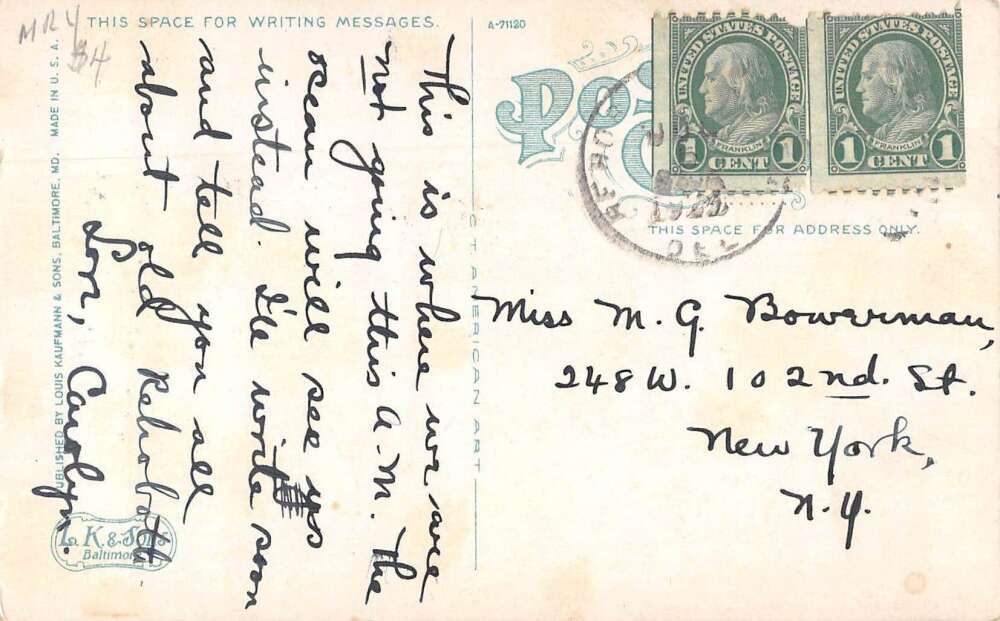 MRY
$4
THIS SPACE FOR WRITING MESSAGES.
A-71120
This is where we are
not going this A.M. The
ocean will see us
instead. I'll write soon
and tell you all
about old Rehoboth.
Lov, Carolyn.
PUBLISHED BY LOUIS KAUFMANN & SONS, BALTIMORE, MD. MADE IN U. S. A.
L. K & Sons
Baltimore
C.T. AMERICAN ART
UNITED STATES POSTAGE
FRANKLIN
1 CENT 1
UNITED STATES POSTAGE
FRANKLIN
1 CENT 1
DEL
THIS SPACE FOR ADDRESS ONLY.
Miss M. G. Bowerman,
248 W. 102nd. St.
New York,
N.Y.